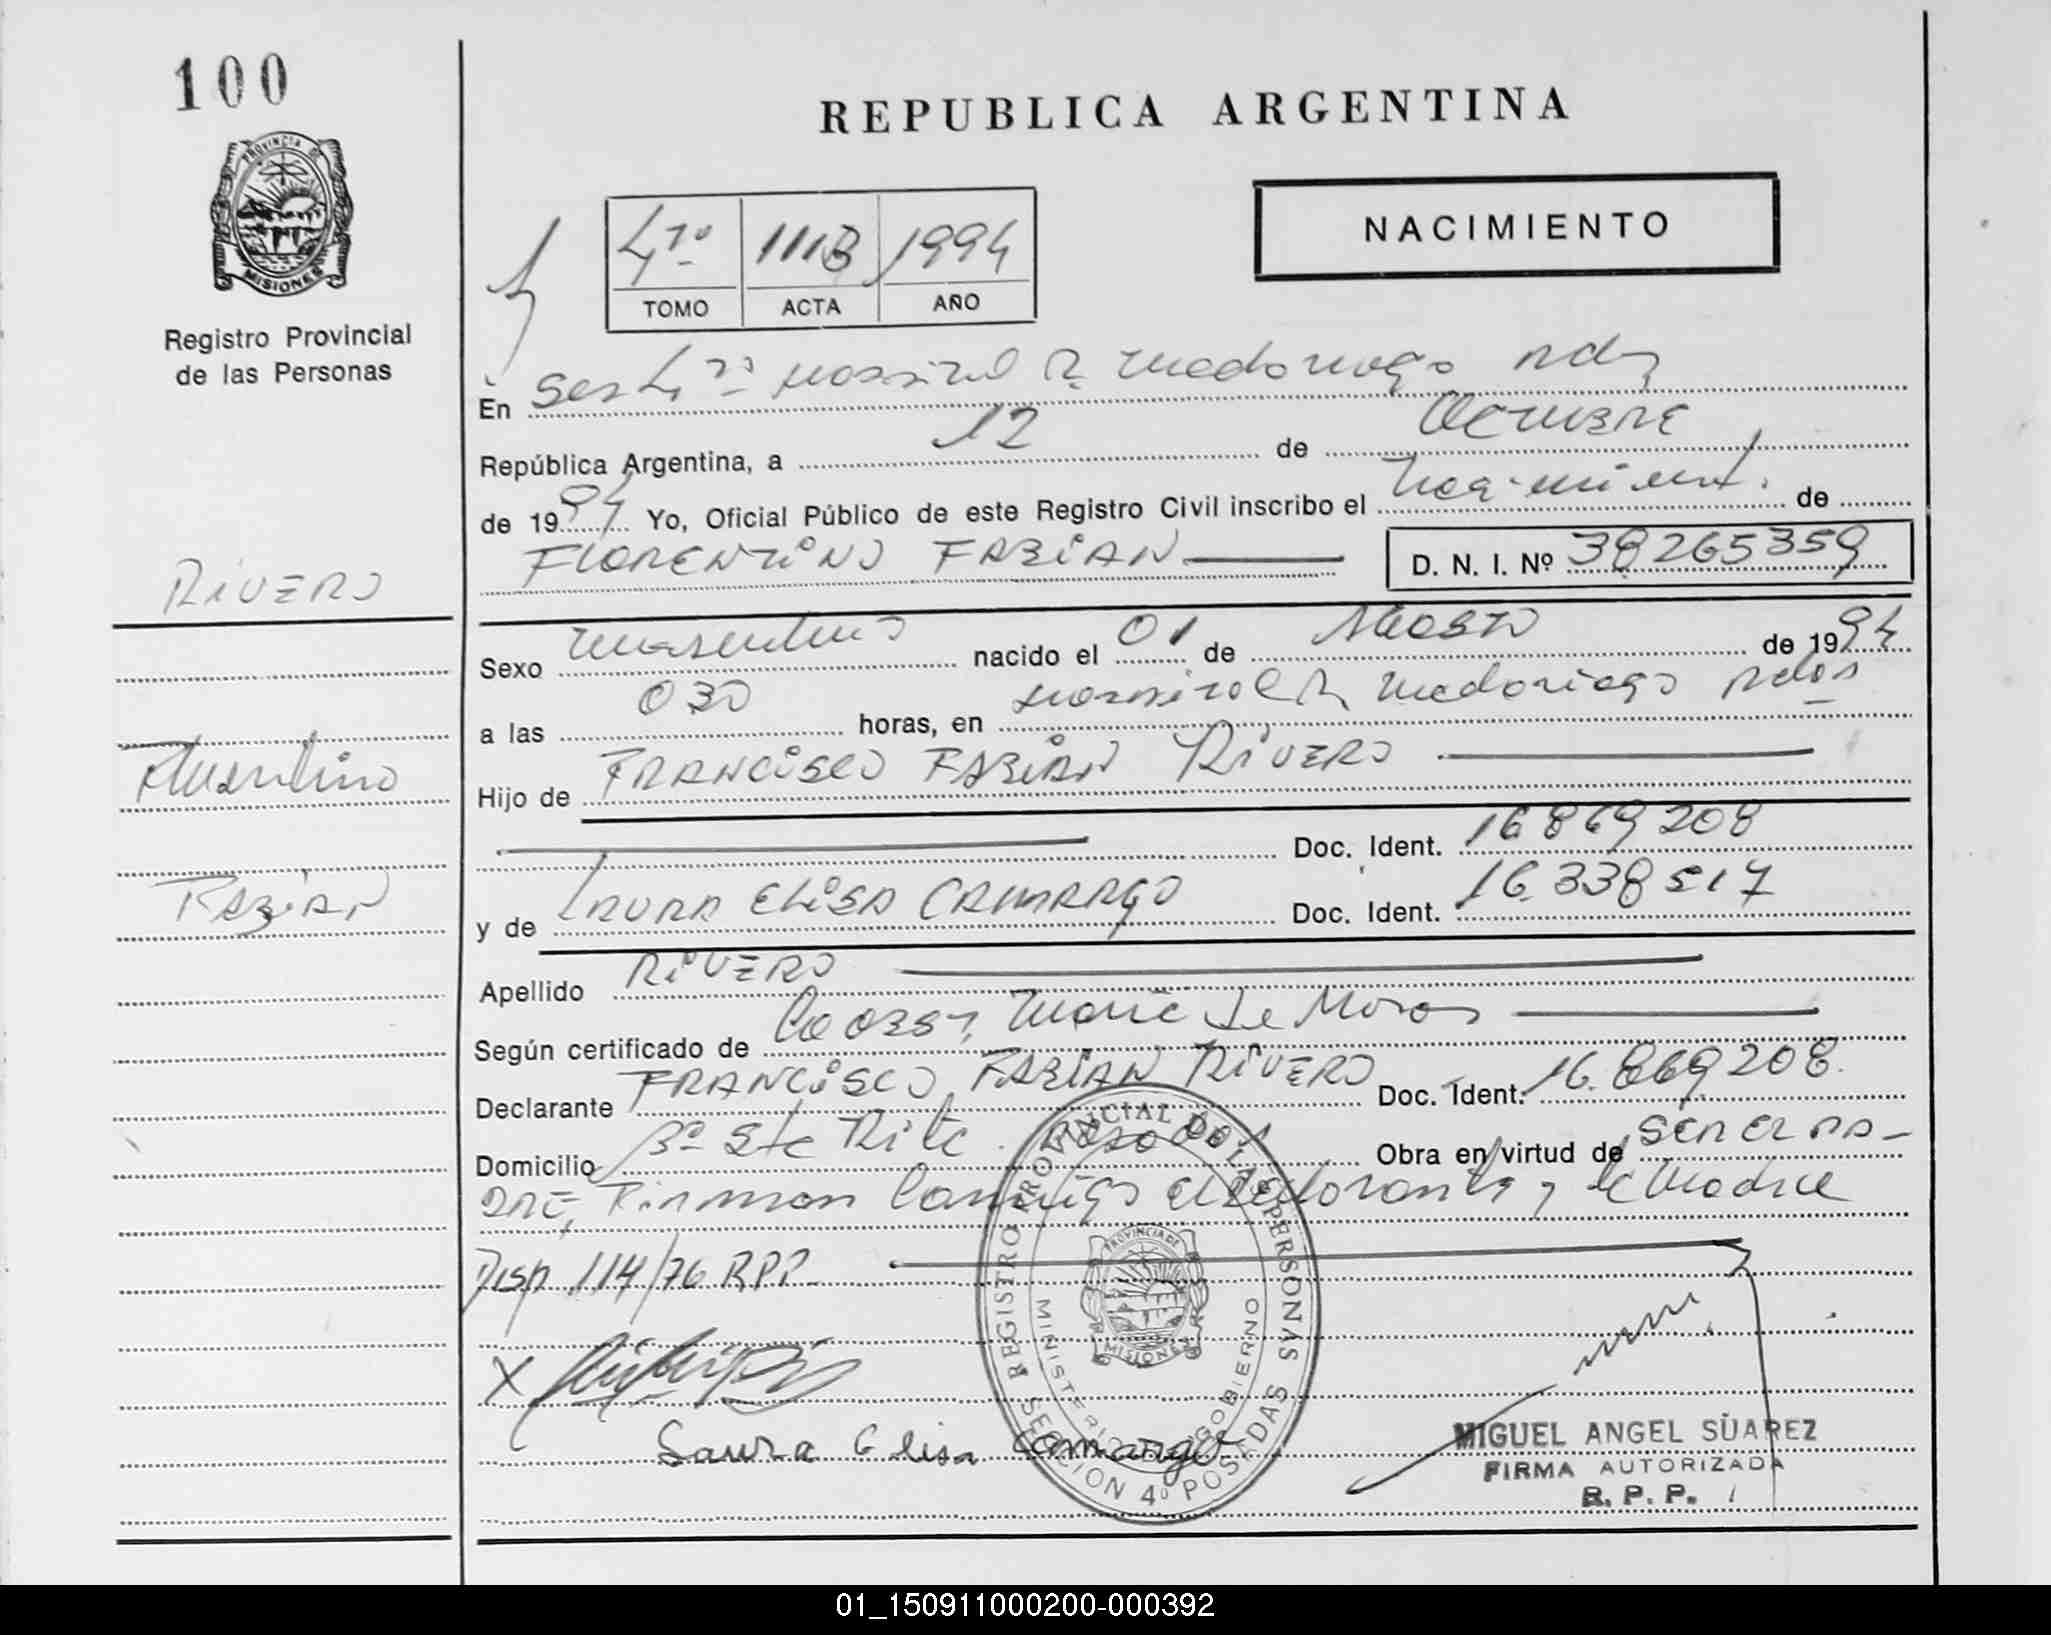 100
REPUBLICA ARGENTINA
PROVINCIA DE
MISIONES
Registro Provincial
de las Personas
4to 1113 1994
TOMO ACTA AÑO
NACIMIENTO
En Secc 4ta Hospital R. Madariaga Pdas
República Argentina, a 12 de Octubre
de 1994 Yo, Oficial Público de este Registro Civil inscribo el nacimiento de
FLORENTINO FABIAN D. N. I. Nº 38265359
RIVERO
Sexo masculino nacido el 01 de Agosto de 1994
a las 030 horas, en Hospital R. Madariaga Pdas
Florentino
Hijo de FRANCISCO FABIAN RIVERO
Doc. Ident. 16869208
FABIAN
y de LAURA ELISA CAMARGO Doc. Ident. 16.338517
Apellido RIVERO
Según certificado de Maria de
Declarante FRANCISCO FABIAN RIVERO Doc. Ident. 16.869208.
Domicilio Bº Sta Rita. Posadas Obra en virtud de ser el pa-
dre, Firman conmigo el declarante y la madre
Disp. 114/76 RPP.
X
Laura Elisa Camargo
REGISTRO PROVINCIAL DE LAS PERSONAS
MINISTERIO DE GOBIERNO
PROVINCIA DE
MISIONES
SECCION 4º POSADAS
MIGUEL ANGEL SUAREZ
FIRMA AUTORIZADA
R. P. P.
01_150911000200-000392